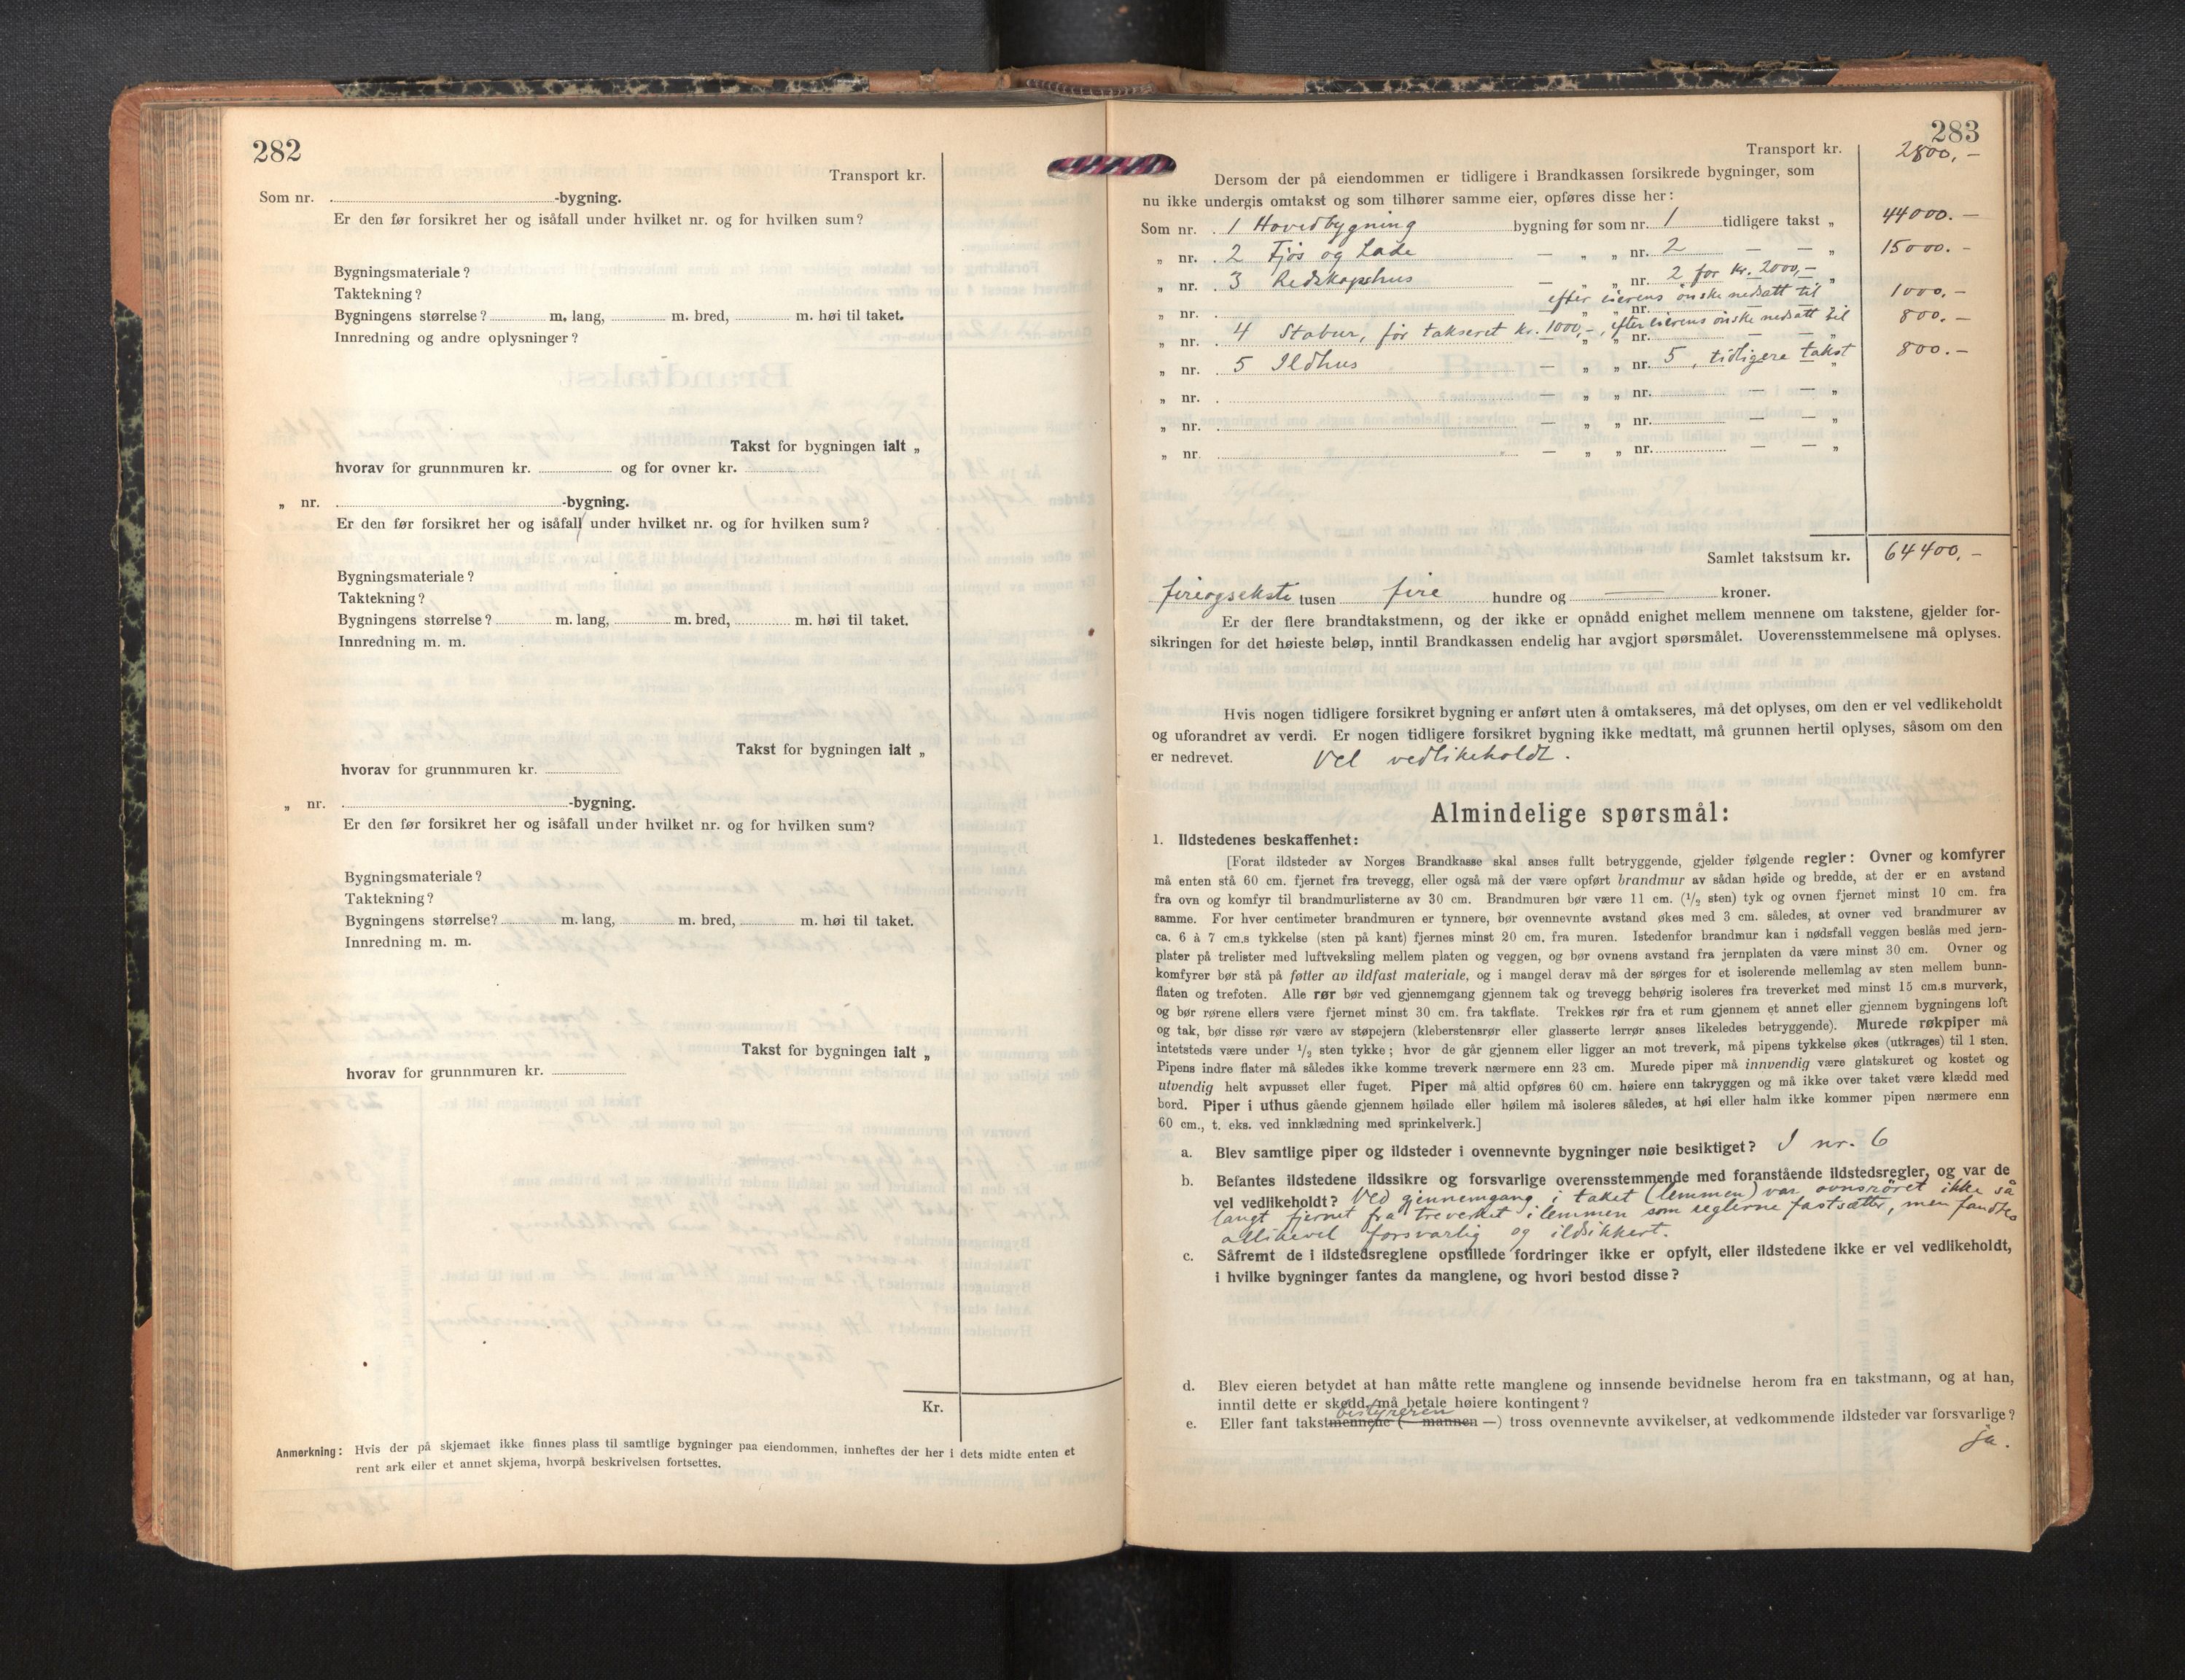 282
Transport kr.
Som nr. -bygning.
Er den før forsikret her og isåfall under hvilket nr. og for hvilken sum?
Bygningsmateriale?
Taktekning?
Bygningens størrelse? m. lang, m. bred, m. høi til taket.
Innredning og andre oplysninger?
Takst for bygningen ialt „
hvorav for grunnmuren kr. og for ovner kr.
„ nr. -bygning.
Er den før forsikret her og isåfall under hvilket nr. og for hvilken sum?
Bygningsmateriale?
Taktekning?
Bygningens størrelse? m. lang, m. bred, m. høi til taket.
Innredning m. m.
Takst for bygningen ialt „
hvorav for grunnmuren kr.
„ nr. -bygning.
Er den før forsikret her og isåfall under hvilket nr. og for hvilken sum?
Bygningsmateriale?
Taktekning?
Bygningens størrelse? m. lang, m. bred, m. høi til taket.
Innredning m. m.
Takst for bygningen ialt „
hvorav for grunnmuren kr.
Kr.
Anmerkning: Hvis der på skjemaet ikke finnes plass til samtlige bygninger paa eiendommen, innheftes der her i dets midte enten et
rent ark eller et annet skjema, hvorpå beskrivelsen fortsettes.
283
Transport kr. 2800,-
Dersom der på eiendommen er tidligere i Brandkassen forsikrede bygninger, som
nu ikke undergis omtakst og som tilhører samme eier, opføres disse her:
Som nr. 1 Hovedbygning bygning før som nr. 1 tidligere takst „ 44000.-
„ nr. 2 Fjøs og Lade — „ „ nr. 2 — — „ 15000.-
„ nr. 3 Redskapshus — „ „ nr. 2 for kr. 2000,- „
„ nr. efter eierens ønske nedsatt til „ nr. 1000,-
„ nr. 4 Stabur, før takseret kr. 1000,-, efter eierens ønske nedsatt til „ „ nr. — — „ 800.-
„ nr. 5 Ildhus — „ „ nr. 5, tidligere takst „ 800.-
„ nr. — „ „ nr. — — „
„ nr. — „ „ nr. — — „
„ nr. — „ „ nr. — — „
Samlet takstsum kr. 64400,-
fireogseksti tusen fire hundre og — kroner.
Er der flere brandtakstmenn, og der ikke er opnådd enighet mellem mennene om takstene, gjelder for-
sikringen for det høieste beløp, inntil Brandkassen endelig har avgjort spørsmålet. Uoverensstemmelsene må oplyses.
Hvis nogen tidligere forsikret bygning er anført uten å omtakseres, må det oplyses, om den er vel vedlikeholdt
og uforandret av verdi. Er nogen tidligere forsikret bygning ikke medtatt, må grunnen hertil oplyses, såsom om den
er nedrevet. Vel vedlikeholdt.
Almindelige spørsmål:
1. Ildstedenes beskaffenhet:
[Forat ildsteder av Norges Brandkasse skal anses fullt betryggende, gjelder følgende regler: Ovner og komfyrer
må enten stå 60 cm. fjernet fra trevegg, eller også må der være opført brandmur av sådan høide og bredde, at der er en avstand
fra ovn og komfyr til brandmurlisterne av 30 cm. Brandmuren bør være 11 cm. (1/2 sten) tyk og ovnen fjernet minst 10 cm. fra
samme. For hver centimeter brandmuren er tynnere, bør ovennevnte avstand økes med 3 cm. således, at ovner ved brandmurer av
ca. 6 à 7 cm.s tykkelse (sten på kant) fjernes minst 20 cm. fra muren. Istedenfor brandmur kan i nødsfall veggen beslås med jern-
plater på trelister med luftveksling mellem platen og veggen, og bør ovnens avstand fra jernplaten da være minst 30 cm. Ovner og
komfyrer bør stå på føtter av ildfast materiale, og i mangel derav må der sørges for et isolerende mellemlag av sten mellem bunn-
flaten og trefoten. Alle rør bør ved gjennemgang gjennem tak og trevegg behørig isoleres fra treverket med minst 15 cm.s murverk,
og bør rørene ellers være fjernet minst 30 cm. fra takflate. Trekkes rør fra et rum gjennem et annet eller gjennem bygningens loft
og tak, bør disse rør være av støpejern (kleberstensrør eller glasserte lerrør anses likeledes betryggende). Murede røkpiper må
intetsteds være under 1/2 sten tykke; hvor de går gjennem eller ligger an mot treverk, må pipens tykkelse økes (utkrages) til 1 sten.
Pipens indre flater må således ikke komme treverk nærmere enn 23 cm. Murede piper må innvendig være glatskuret og kostet og
utvendig helt avpusset eller fuget. Piper må altid opføres 60 cm. høiere enn takryggen og må ikke over taket være klædd med
bord. Piper i uthus gående gjennem høilade eller høilem må isoleres således, at høi eller halm ikke kommer pipen nærmere enn
60 cm., t. eks. ved innklædning med sprinkelverk.]
a. Blev samtlige piper og ildsteder i ovennevnte bygninger nøie besiktiget? I nr. 6
b. Befantes ildstedene ildssikre og forsvarlige overensstemmende med foranstående ildstedsregler, og var de
vel vedlikeholdt? Ved gjennemgang i taket (lemmen) var ovnsrøret ikke så
langt fjernet fra treverket i lemmen som reglerne fastsætter, men fandtes
allikevel forsvarlig og ildsikkert.
c. Såfremt de i ildstedsreglene opstillede fordringer ikke er opfylt, eller ildstedene ikke er vel vedlikeholdt,
i hvilke bygninger fantes da manglene, og hvori bestod disse?
d. Blev eieren betydet at han måtte rette manglene og innsende bevidnelse herom fra en takstmann, og at han,
inntil dette er skedd, må betale høiere kontingent?
bestyreren
e. Eller fant takstmennene (— mannen —) tross ovennevnte avvikelser, at vedkommende ildsteder var forsvarlige?
ja.